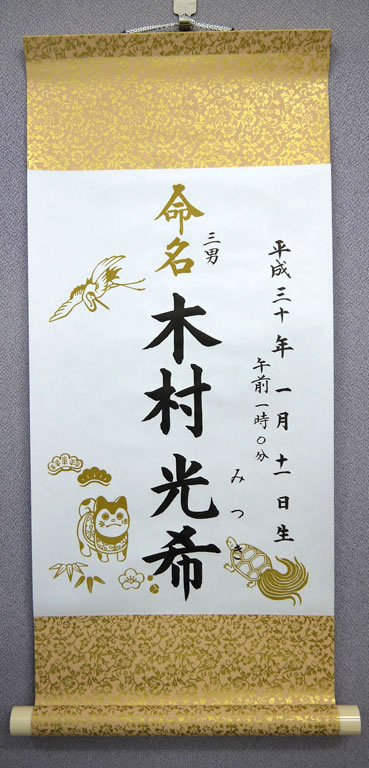 平成三十年一月十一日生
午前一時〇分
命名
三男
木村光希
みつき